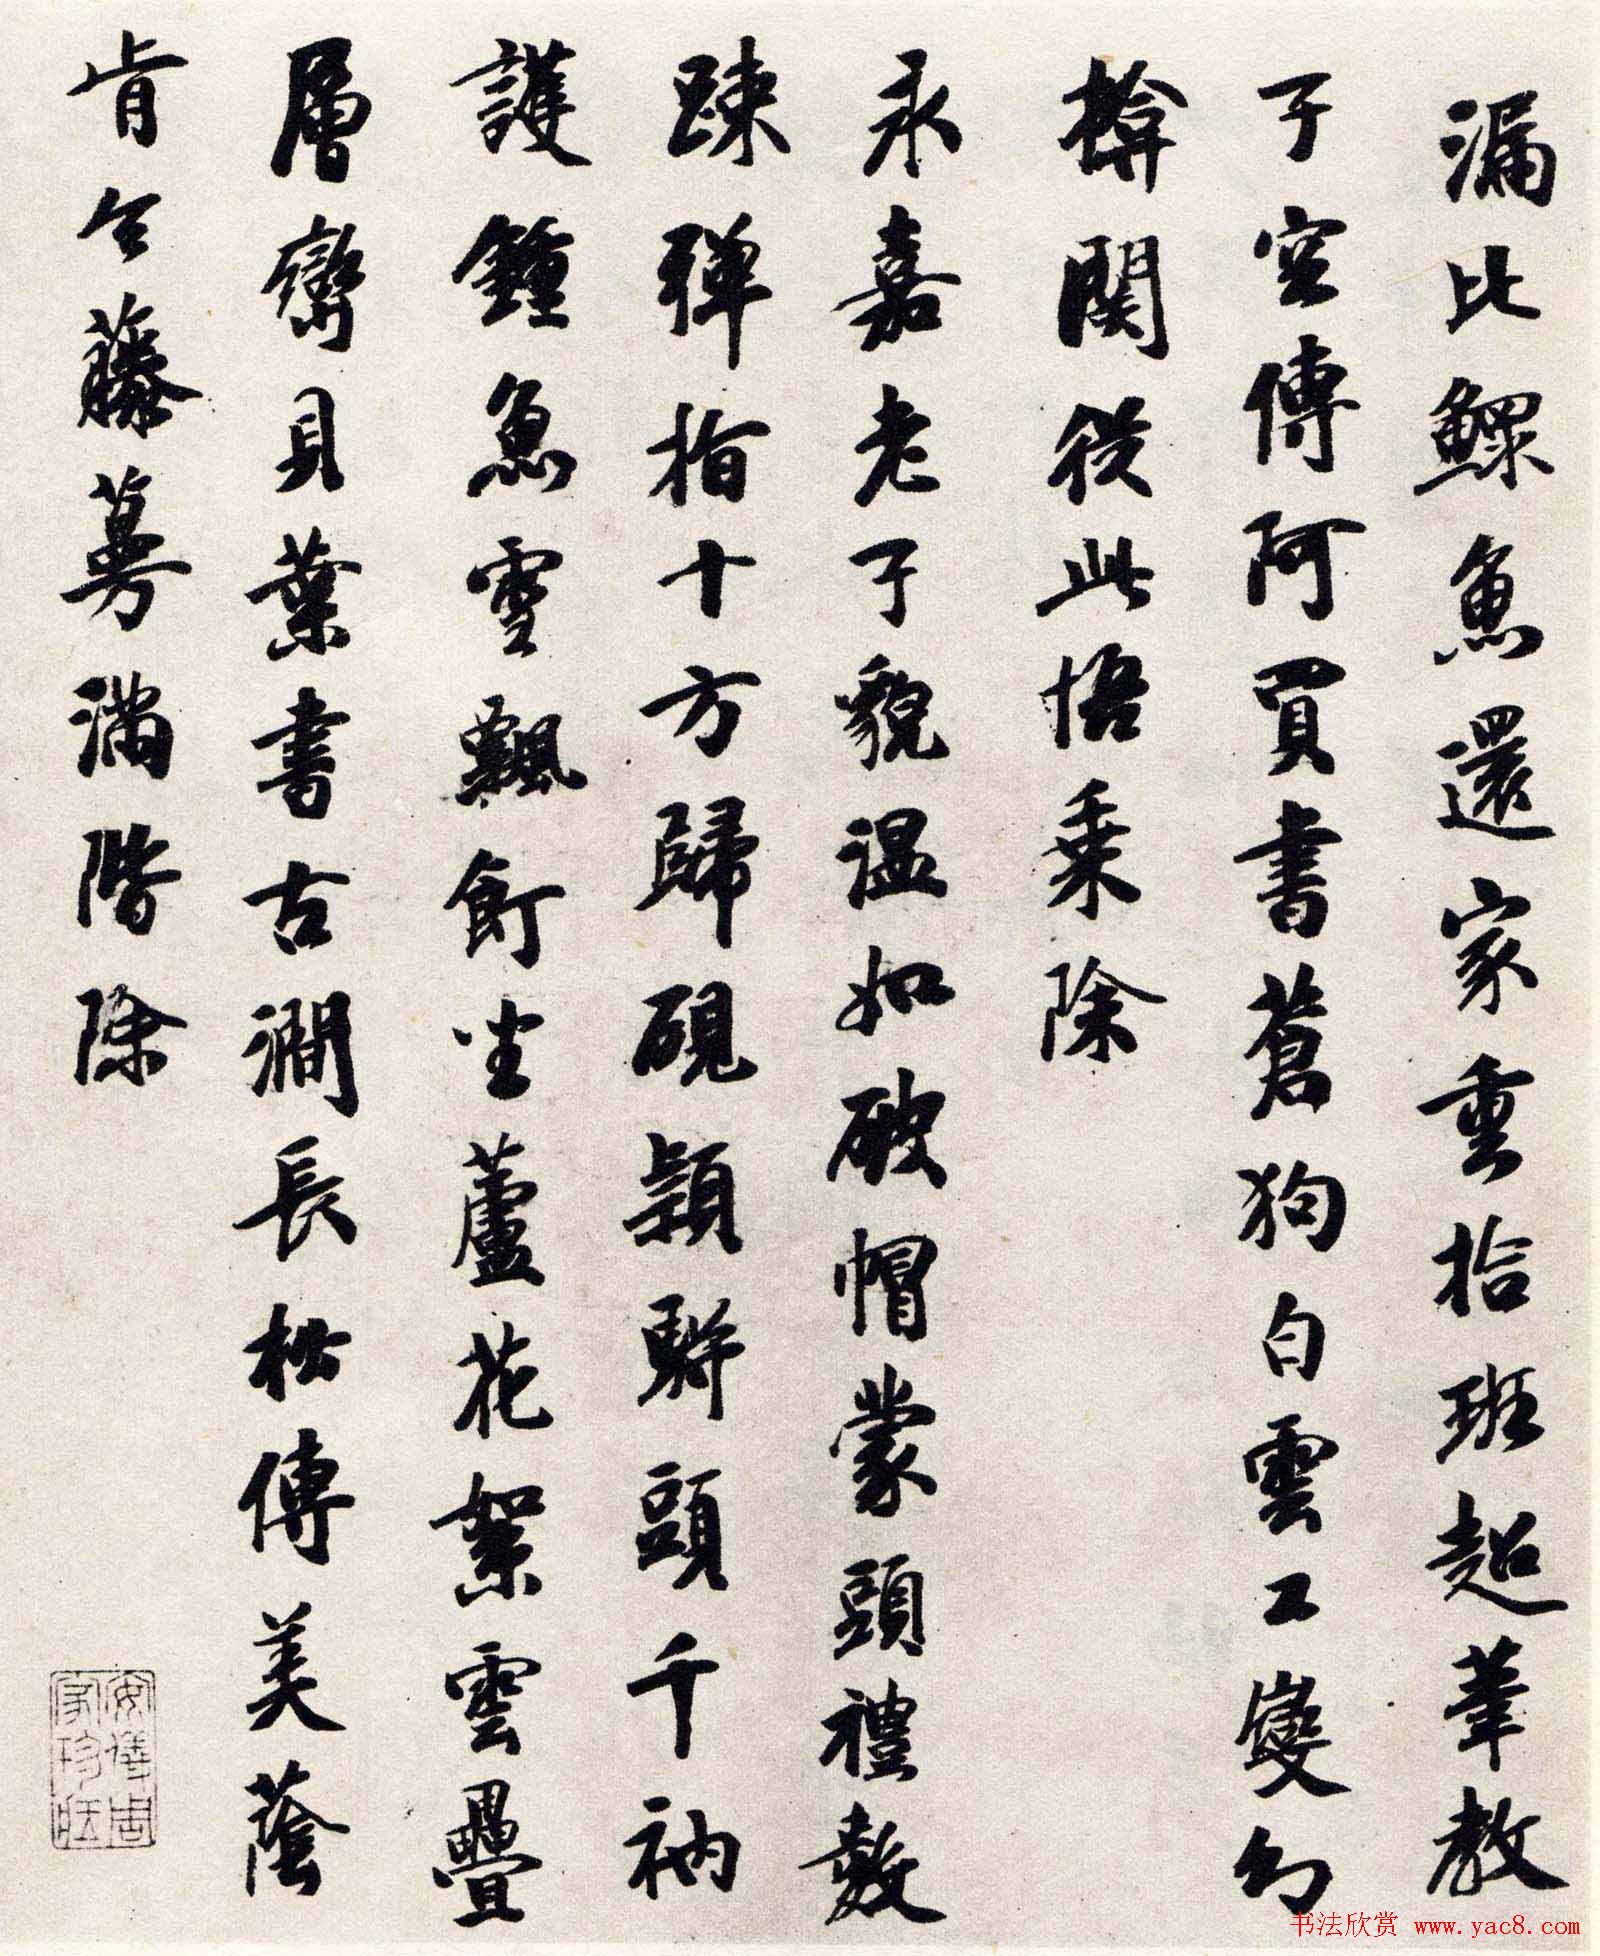 漏比鰥魚還家重拾班超筆教
子空傳阿買書蒼狗白雲工變幻
楗關從此悟乘除
永嘉老子貌温如破帽蒙頭禮數
踈彈指十方歸硯頴駢頭千衲
護鍾魚雪飄飣坐蘆花絮雲疊
層巒貝葉書古澗長松傳美蔭
肯令藤蔓滿階除
安儀周家珍藏
书法欣赏 www.yac8.com